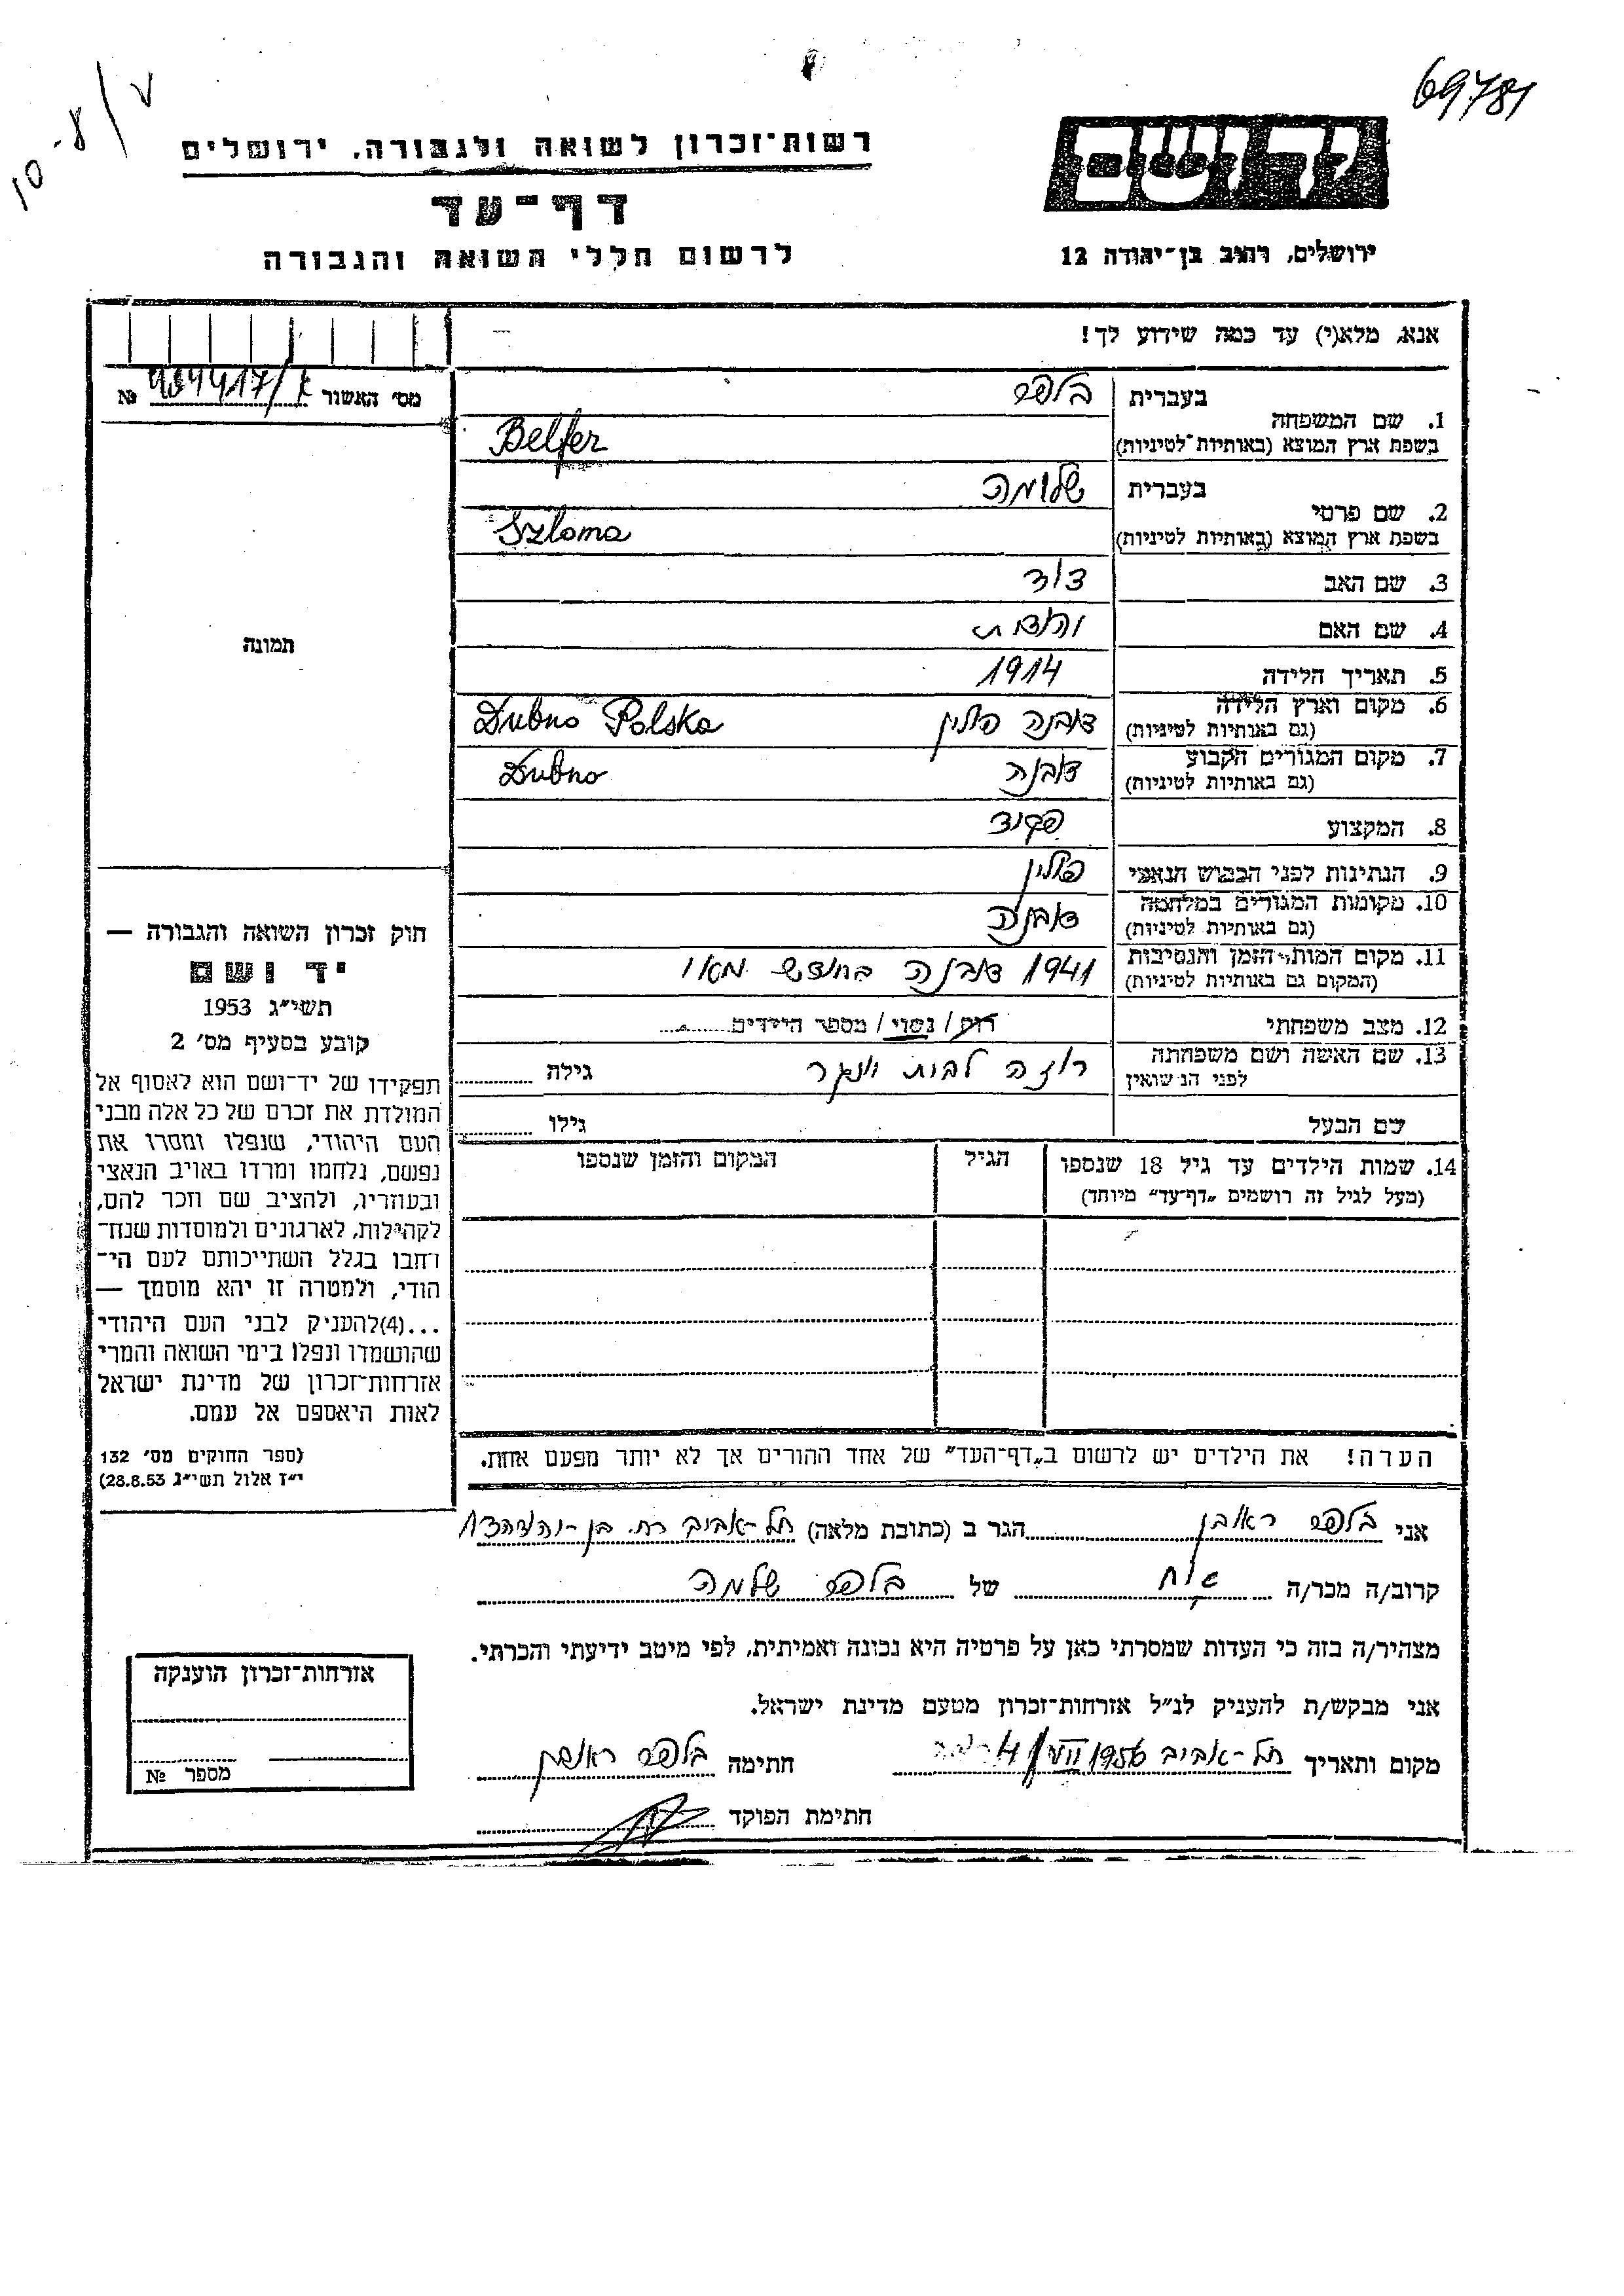 69781
10-8/V
יד ושם
רשות־זכרון לשואה ולגבורה, ירושלים
דף־עד
ירושלים, רחוב בן־יהודה 12
לרשום חללי השואה והגבורה
אנא, מלא(י) עד כמה שידוע לך!
מס׳ האשור № 
1. שם המשפחה
בעברית בלפר
בשפת ארץ המוצא (באותיות לטיניות) Belfer
2. שם פרטי
בעברית שלומה
בשפת ארץ המוצא (באותיות לטיניות) Szloma
3. שם האב דוד
4. שם האם יהודית
5. תאריך הלידה 1914
6. מקום וארץ הלידה דובנה פולין Dubno Polska
(גם באותיות לטיניות)
7. מקום המגורים הקבוע דובנה Dubno
(גם באותיות לטיניות)
8. המקצוע פקיד
9. הנתינות לפני הכבוש הנאצי פולין
10. מקומות המגורים במלחמה דובנה
(גם באותיות לטיניות)
11. מקום המות, הזמן והנסיבות 1941 דובנה בחודש מאי
(המקום גם באותיות לטיניות)
12. מצב משפחתי רוק / נשוי / מספר הילדים
13. שם האשה ושם משפחתה רוזה לבית וינגר גילה
לפני הנשואין
שם הבעל גילו
14. שמות הילדים עד גיל 18 שנספו הגיל המקום והזמן שנספו
(מעל לגיל זה רושמים „דף־עד״ מיוחד)
הערה! את הילדים יש לרשום ב„דף־העד״ של אחד ההורים אך לא יותר מפעם אחת.
תמונה
חוק זכרון השואה והגבורה —
יד ושם
תשי״ג 1953
קובע בסעיף מס׳ 2
תפקידו של יד־ושם הוא לאסוף אל
המולדת את זכרם של כל אלה מבני
העם היהודי, שנפלו ומסרו את
נפשם, נלחמו ומרדו באויב הנאצי
ובעוזריו, ולהציב שם וזכר להם,
לקהילות, לארגונים ולמוסדות שנח־
רחבו בגלל השתייכותם לעם הי־
הודי, ולמטרה זו יהא מוסמך —
...(4)להעניק לבני העם היהודי
שהושמדו ונפלו בימי השואה והמרי
אזרחות־זכרון של מדינת ישראל
לאות היאספם אל עמם.
(ספר החוקים מס׳ 132
י״ז אלול תשי״ג 28.8.53)
אני בלפר ראובן הגר ב (כתובת מלאה) תל-אביב רח. בן-יהודה
קרוב/ה מכר/ה אח של בלפר שלמה
מצהיר/ה בזה כי העדות שמסרתי כאן על פרטיה היא נכונה ואמיתית, לפי מיטב ידיעתי והכרתי.
אני מבקש/ת להעניק לנ״ל אזרחות־זכרון מטעם מדינת ישראל.
מקום ותאריך תל-אביב 1956 חתימה בלפר ראובן
חתימת הפוקד
אזרחות־זכרון הוענקה
מספר №